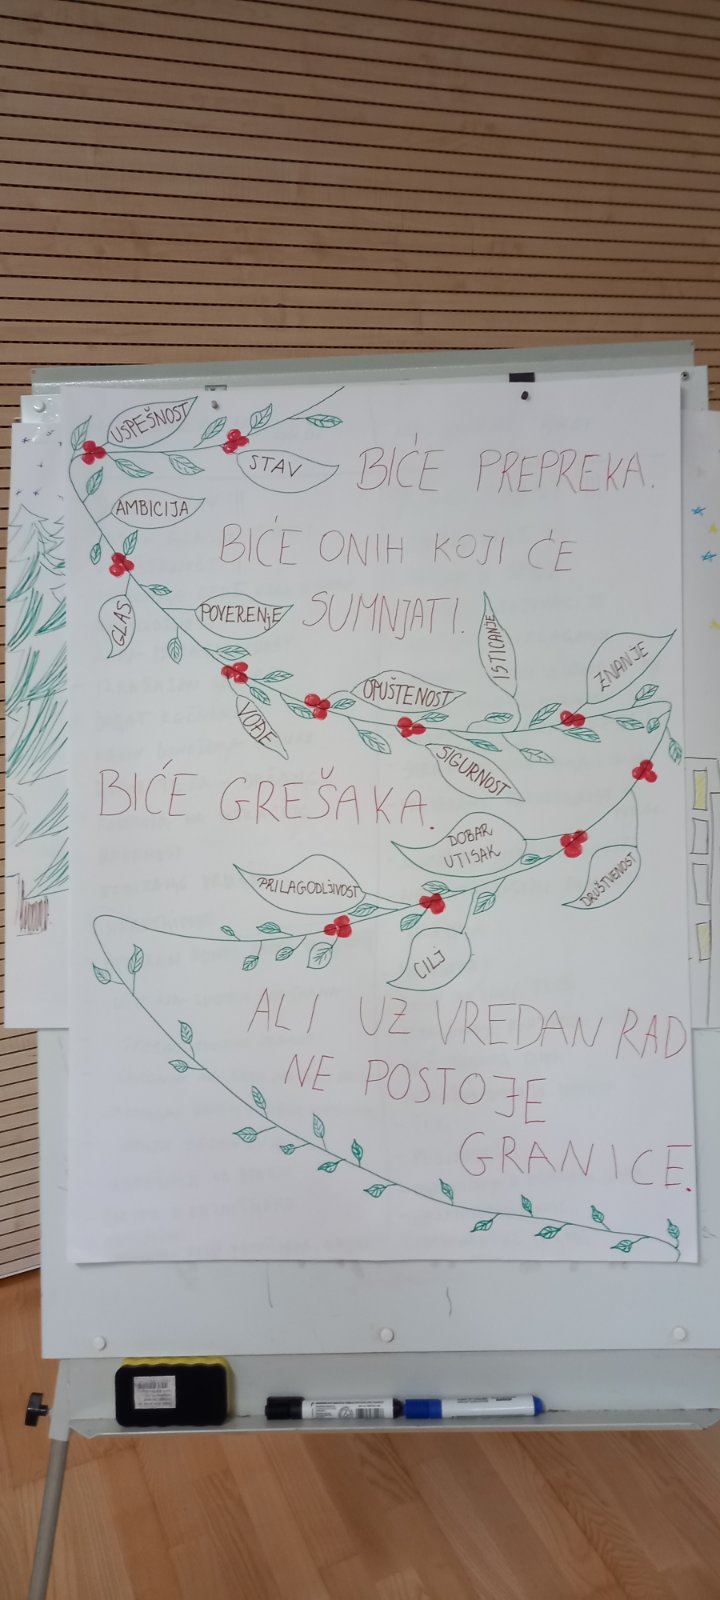 USPEŠNOST
STAV
BIĆE PREPREKA.
AMBICIJA
BIĆE ONIH KOJI ĆE
SUMNJATI.
GLAS
POVERENjE
ISTICANJE
ZNANJE
OPUŠTENOST
SIGURNOST
BIĆE GREŠAKA.
DOBAR
UTISAK
DRUŠTVENOST
PRILAGODLjIVOST
CILJ
ALI UZ VREDAN RAD
NE POSTOJE
GRANICE.